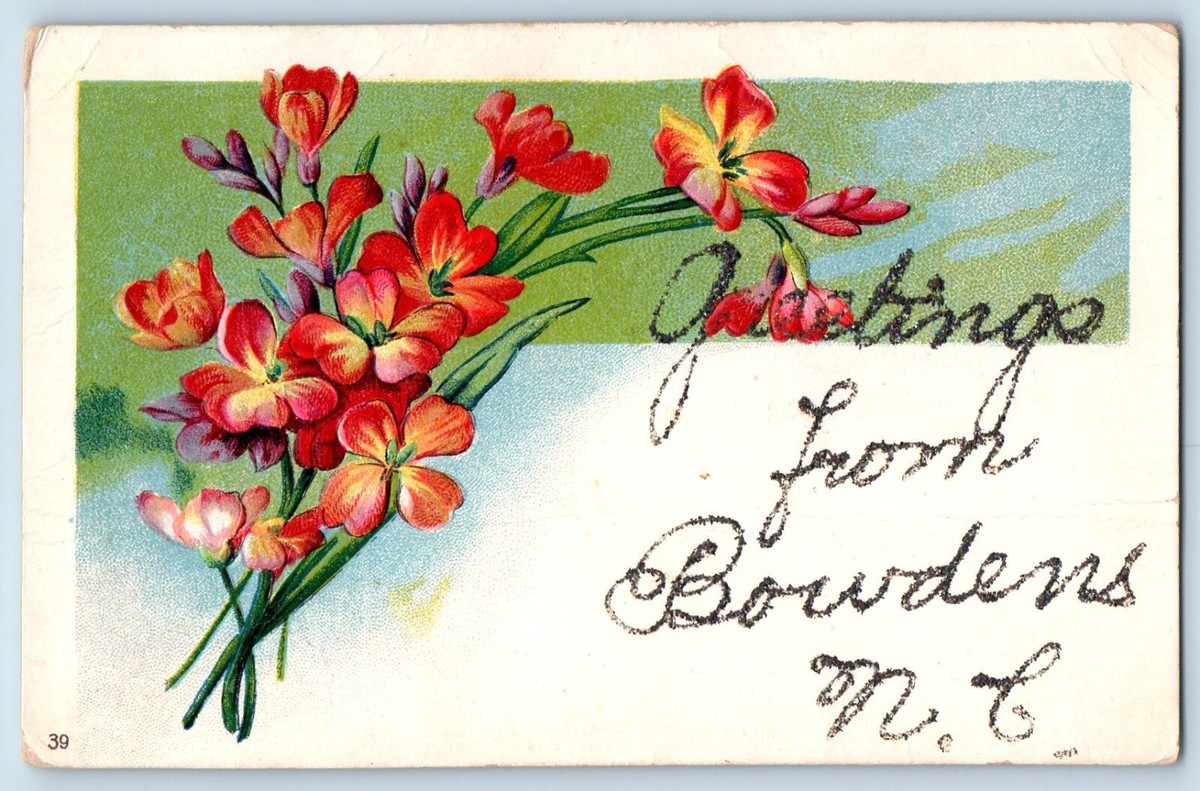 Greetings
from
Bowdens
N.C.
39